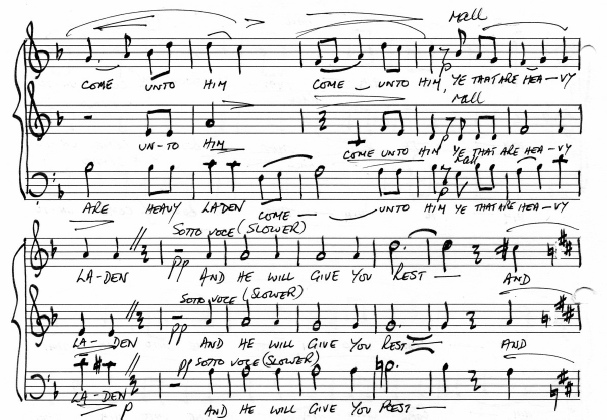 rall
COME UNTO HIM COME UNTO HIM, YE THAT ARE HEA-VY
rall
UN-TO HIM COME UNTO HIM YE THAT ARE HEA-VY
p rall
ARE HEAVY LADEN COME UNTO HIM YE THAT ARE HEA-VY
SOTTO VOCE (SLOWER)
pp
LA-DEN AND HE WILL GIVE YOU REST AND
SOTTO VOCE (SLOWER)
pp
LA-DEN AND HE WILL GIVE YOU REST AND
pp SOTTO VOCE (SLOWER)
LA-DEN
p AND HE WILL GIVE YOU REST